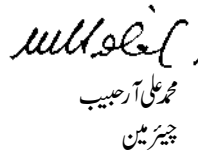 محمد علی آر حبیب
چیئرمین